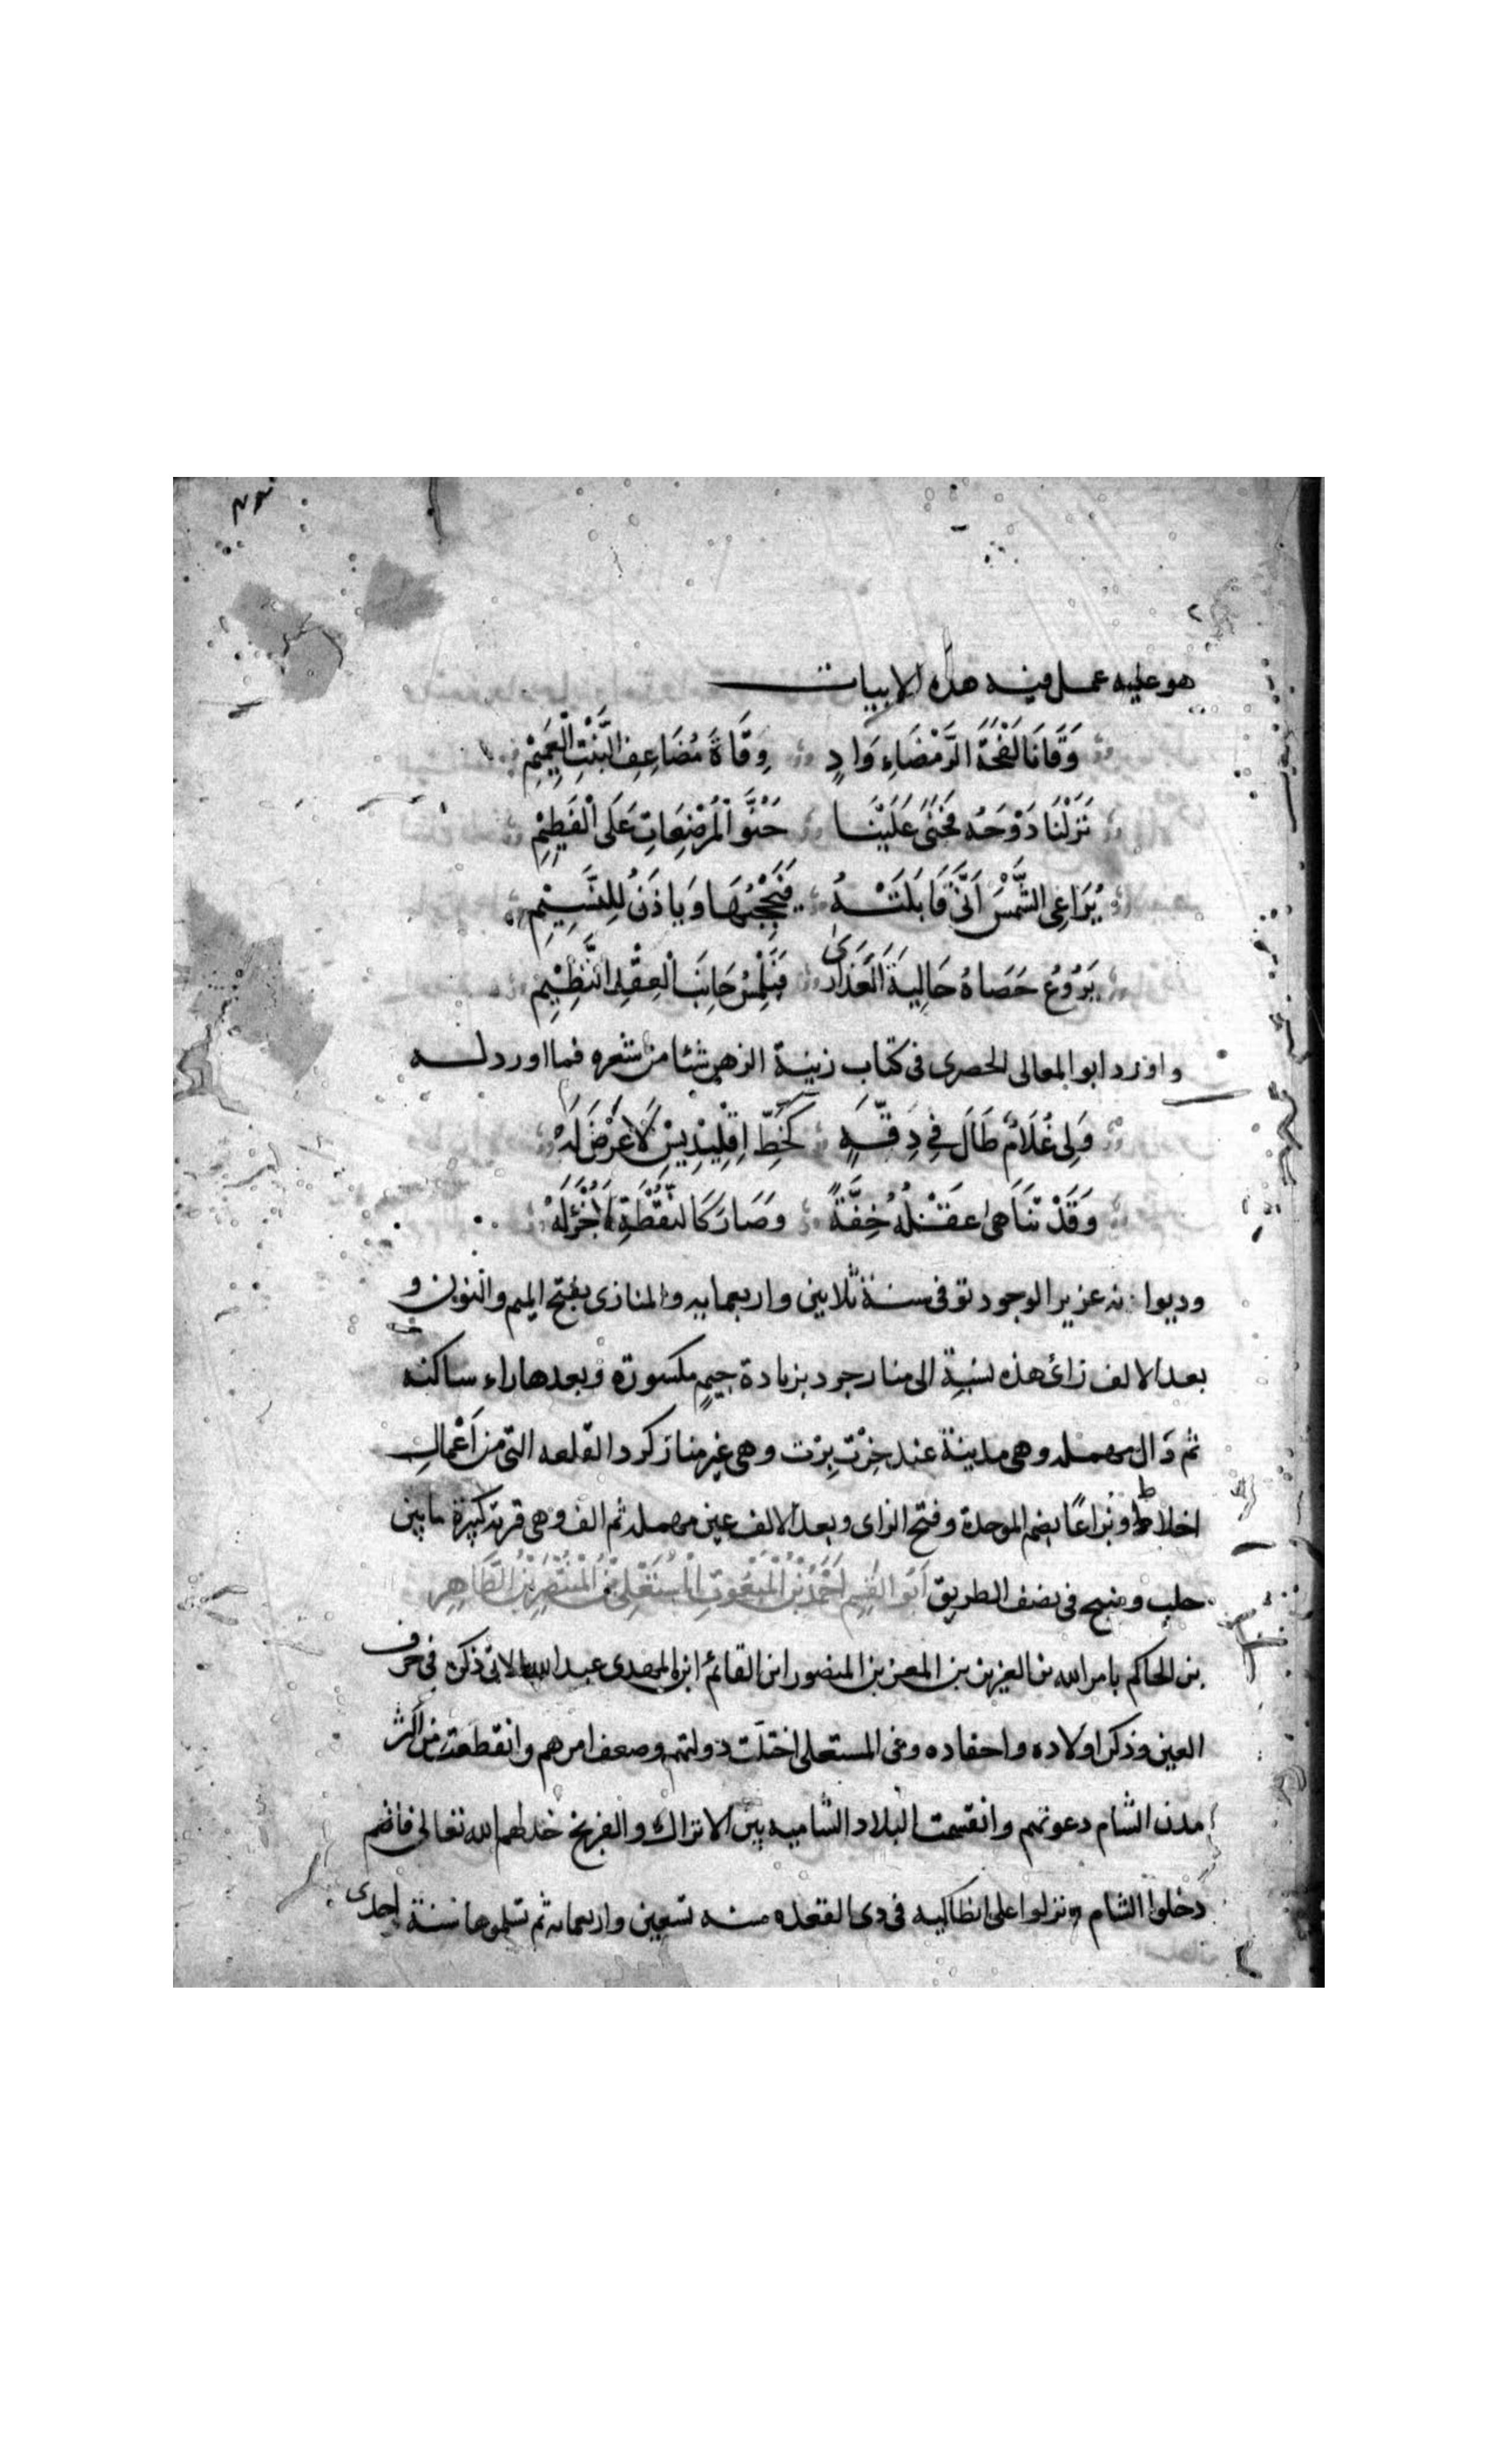 هو عليه عمل فيه هذه الابيات
وَقَانَا لَفْحَةَ الرَّمْضَاءِ وَادٍ وِقَاهُ مُضَاعِفُ النَّبْتِ الْعَمِيْمِ
نَزَلْنَا دَوْحَهُ فَحَنَىٰ عَلَيْنَا حُنُوَّ الْمُرْضِعَاتِ عَلَى الْفَطِيْمِ
يُرَاعِى الشَّمْسَ اَنَّى قَابَلَتْهُ فَيَحْجُبُهَا وَيَاذَنُ لِلنَّسِيْمِ
يَرُوْعُ حَصَاهُ حَالِيَةَ الْعَذَارَىٰ فَتَلْمِسُ جَانِبَ الْعِقْدِ النَّظِيْمِ
واورد ابو المعالى الحصرى فى كتاب زينة الزهر شئا من شعره فما اورد له
وَلِى غُلَامٌ طَالَ فِى دِقَّةٍ كَخَطِّ اِقْلِيْدِيْسِ لَا عَرْضَ لَهْ
وَقَدْ تَنَاهىٰ عَقْلُهُ خِفَّةً وَصَارَ كَالنُّقْطَةِ لَا جُزْءَ لَهْ
وديوانه عزيز الوجود توفى سنة ثلاثين واربعمايه والمنازى بفتح الميم والنون و
بعد الالف زاى هذه نسبة الى منازجرد بزيادة جيم مكسورة وبعدها راء ساكنه
ثم دَال مهمله وهى مدينة عند خِرْت بِرْت وهى غير منازكرد القلعه التى من اَعْمالِ
اخلاط وبُزاعًا بضم الموحدة وفتح الزاى وبعد الالف عين مهمله ثم الف وهى قرية كبيرة ما بين
حلب ومنبج فى نصف الطريق اَبُو القٰسِم اَحْمَدُ بْنُ الْمَنْعُوتِ بِالْمُسْتَعْلِى بْنُ الْمُسْتَنْصِرِ بْنُ الظَّاهِرِ
بن الحاكم بامر الله بن العزيز بن المعز بن المنصور ابن القائم ابن المهدى عبد الله الاتى ذكره فى حرف
العين وذكر اولاده واحفاده وفى المستعلى اختلّت دولتهم وضعف امرهم وانقطعت من اكثر
مدن الشام دعوتهم وانقسمت البلاد الشاميه بين الاتراك والفرنج خذلهم الله تعالى فانهم
دخلوا الشام ونزلوا على انطاكيه فى ذى القعده سنه تسعين واربعمائه ثم تسلموها سنة احدى